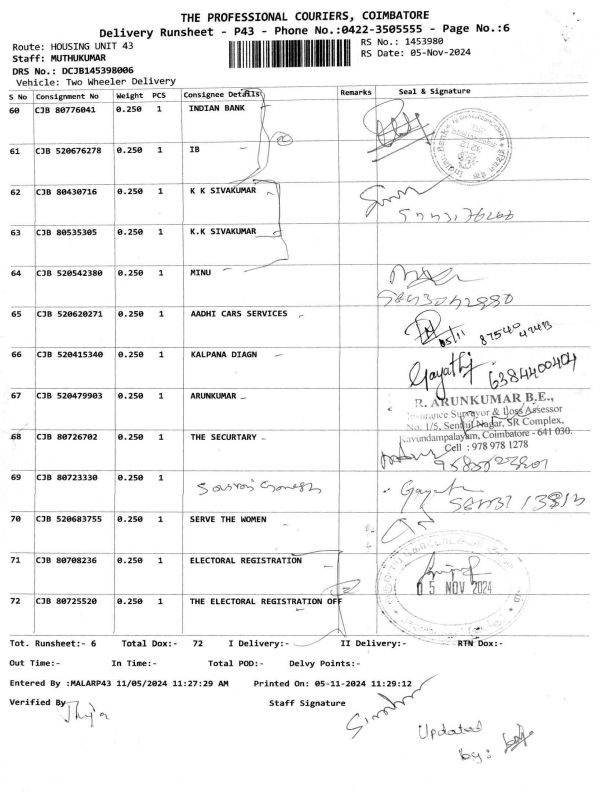 THE PROFESSIONAL COURIERS, COIMBATORE
Delivery Runsheet - P43 - Phone No.:0422-3505555 - Page No.:6
Route: HOUSING UNIT 43 RS No.: 1453980
Staff: MUTHUKUMAR RS Date: 05-Nov-2024
DRS No.: DCJB145398006
Vehicle: Two Wheeler Delivery
S No Consignment No Weight PCS Consignee Details Remarks Seal & Signature
60 CJB 80776041 0.250 1 INDIAN BANK
61 CJB 520676278 0.250 1 IB
62 CJB 80430716 0.250 1 K K SIVAKUMAR
63 CJB 80535305 0.250 1 K.K SIVAKUMAR
64 CJB 520542380 0.250 1 MINU
65 CJB 520620271 0.250 1 AADHI CARS SERVICES
05/11 87540
66 CJB 520415340 0.250 1 KALPANA DIAGN Gayathri 6384400404
67 CJB 520479903 0.250 1 ARUNKUMAR R. ARUNKUMAR B.E.,
Insurance Surveyor & Loss Assessor
No. 1/5, Senthil Nagar, SR Complex,
Kavundampalayam, Coimbatore - 641 030.
Cell : 978 978 1278
68 CJB 80726702 0.250 1 THE SECURTARY
69 CJB 80723330 0.250 1
70 CJB 520683755 0.250 1 SERVE THE WOMEN
71 CJB 80708236 0.250 1 ELECTORAL REGISTRATION
05 NOV 2024
72 CJB 80725520 0.250 1 THE ELECTORAL REGISTRATION OFF
Tot. Runsheet:- 6 Total Dox:- 72 I Delivery:- II Delivery:- RTN Dox:-
Out Time:- In Time:- Total POD:- Delvy Points:-
Entered By :MALARP43 11/05/2024 11:27:29 AM Printed On: 05-11-2024 11:29:12
Verified By Staff Signature
Updated
by: